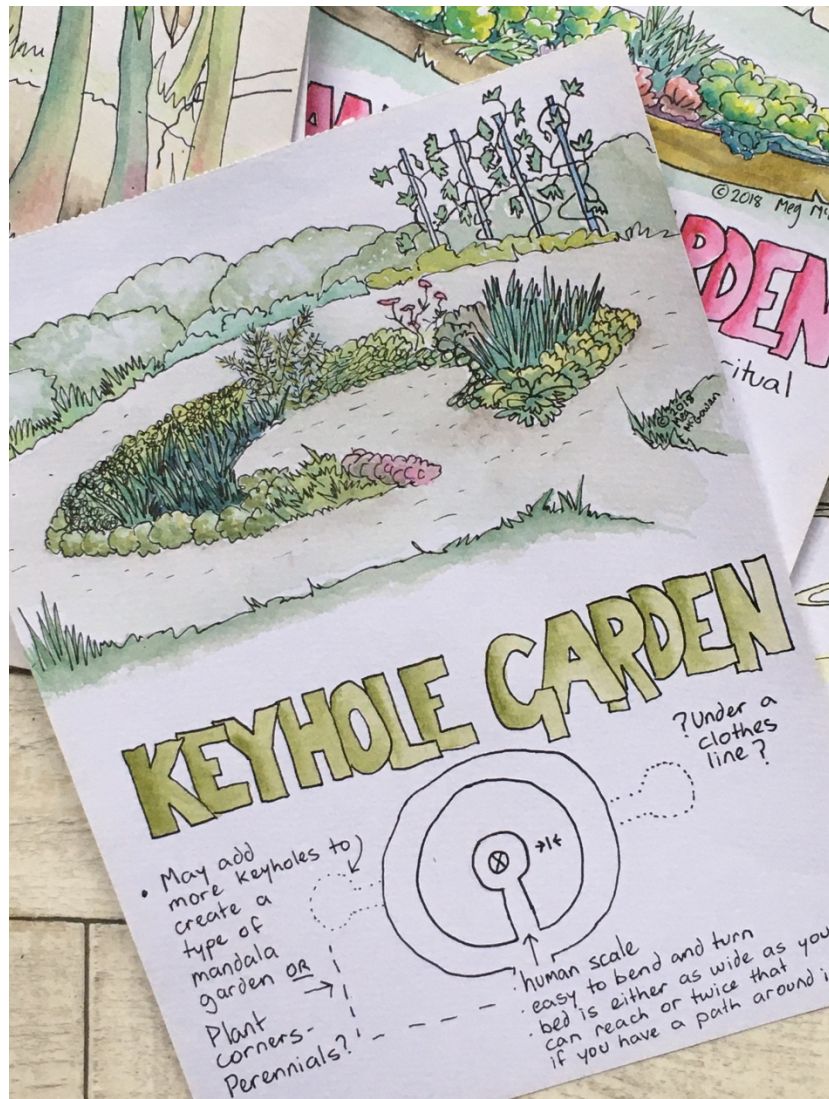 © 2018 Meg
RDEN
ritual
© 2018
Meg
McGowan
KEYHOLE GARDEN
?Under a
clothes
line?
• May add
more keyholes to
create a
type of
mandala
garden OR
Plant
corners-
Perennials?
X
· human scale
· easy to bend and turn
· bed is either as wide as you
can reach or twice that
if you have a path around i